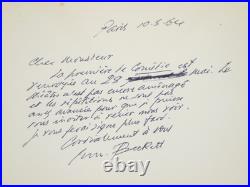 Paris 10.5.64
Cher Monsieur
La première de Comédie est
renvoyée au 29 mai. Le
théâtre n'est pas encore aménagé
et les répétitions ne sont pas
pour que je puisse
vous inviter à venir nous voir.
Je vous ferai signe plus tard.
Cordialement à vous
Sam. Beckett